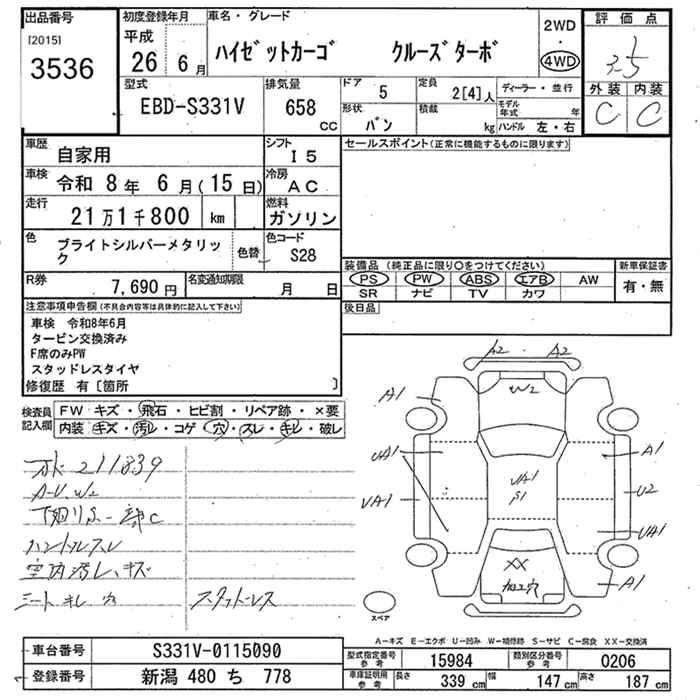 出品番号
[2015]
3536
初度登録年月
平成
26 6 月
車名・グレード
ハイゼットカーゴ クルーズターボ
2WD
・
4WD
評価点
3.5
外装 内装
C C
型式
EBD-S331V
排気量
658
CC
ドア
5
定員
2[4]人
ディーラー・並行
形状
バン
積載
kg
モデル年式
年
ハンドル 左・右
車歴
自家用
シフト
I5
車検 令和 8年 6月(15日)
冷房
AC
走行
21万1千800 km
燃料
ガソリン
色
ブライトシルバーメタリック
色替
色コード
S28
R券
7,690円
名変通知期限
月 日
セールスポイント(正常に機能するものに限ります)
装備品 (純正品に限り○をつけてください)
PS PW ABS エアB AW
SR ナビ TV カワ
新車保証書
有・無
後日品
注意事項申告欄(不具合内容等は具体的に記入して下さい)
車検 令和8年6月
タービン交換済み
F席のみPW
スタッドレスタイヤ
修復歴 有〔箇所 〕
検査員記入欄
FW キズ・飛石・ヒビ割・リペア跡・×要
内装 キズ・汚レ・コゲ・穴・スレ・キレ・破レ
211839
A-U.W2
ハンドルスレ
室内汚レ、キズ
シートキレ 穴 スタットレス
A2 A2
A1 W2
UA1 A1
UA1 UA1 U2
S1
UA1
XX
A1
スペア
A-キズ E-エクボ U-凹み W-補修跡 S-サビ C-腐食 XX-交換済
車台番号 S331V-0115090
登録番号 新潟 480 ち 778
型式指定番号 参考 15984
類別区分番号 参考 0206
車庫証明用 参考 長さ 339 cm 幅 147 cm 高さ 187 cm